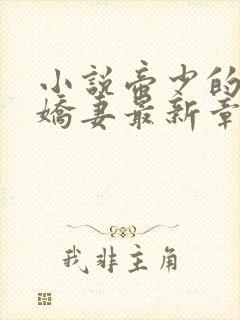 小說帝少的
嬌妻最新章
我非主角